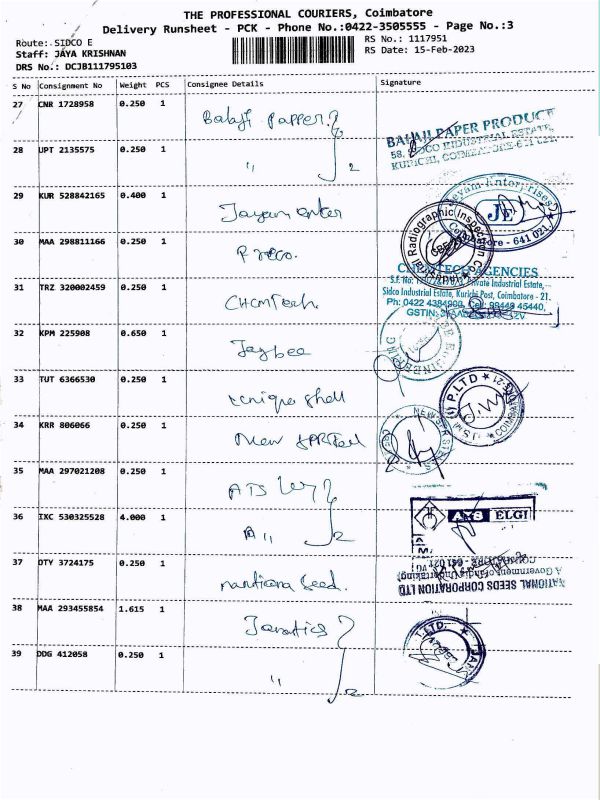 THE PROFESSIONAL COURIERS, Coimbatore
Delivery Runsheet - PCK - Phone No.:0422-3505555 - Page No.:3
Route: SIDCO E
RS No.: 1117951
Staff: JAYA KRISHNAN
RS Date: 15-Feb-2023
DRS No.: DCJB111795103
S No Consignment No Weight PCS Consignee Details Signature
27 CNR 1728958 0.250 1 Balaji Papper
BALAJI PAPER PRODUCT
58, SIDCO INDUSTRIAL ESTATE,
KURICHI, COIMBATORE-641 021.
28 UPT 2135575 0.250 1 " 2
29 KUR 528842165 0.400 1 Jayam enter
Jeyam Enterprises
JE
Coimbatore - 641 021
30 MAA 298811166 0.250 1
Radiographic Inspection
31 TRZ 320002459 0.250 1 CHemTech
AGENCIES
Private Industrial Estate,
Sidco Industrial Estate, Kurichi Post, Coimbatore - 21.
Ph: 0422 Cell: 98448 45440,
GSTIN:
32 KPM 225908 0.650 1 Jaybee
33 TUT 6366530 0.250 1 unique shell
P.LTD
34 KRR 806066 0.250 1 New
35 MAA 297021208 0.250 1
36 IXC 530325528 4.000 1 2
ELGI
37 DTY 3724175 0.250 1 seed.
NATIONAL SEEDS CORPORATION LTD
A Government of India Undertaking
38 MAA 293455854 1.615 1 Janatics
T.LTD.
39 DDG 412058 0.250 1 " 2